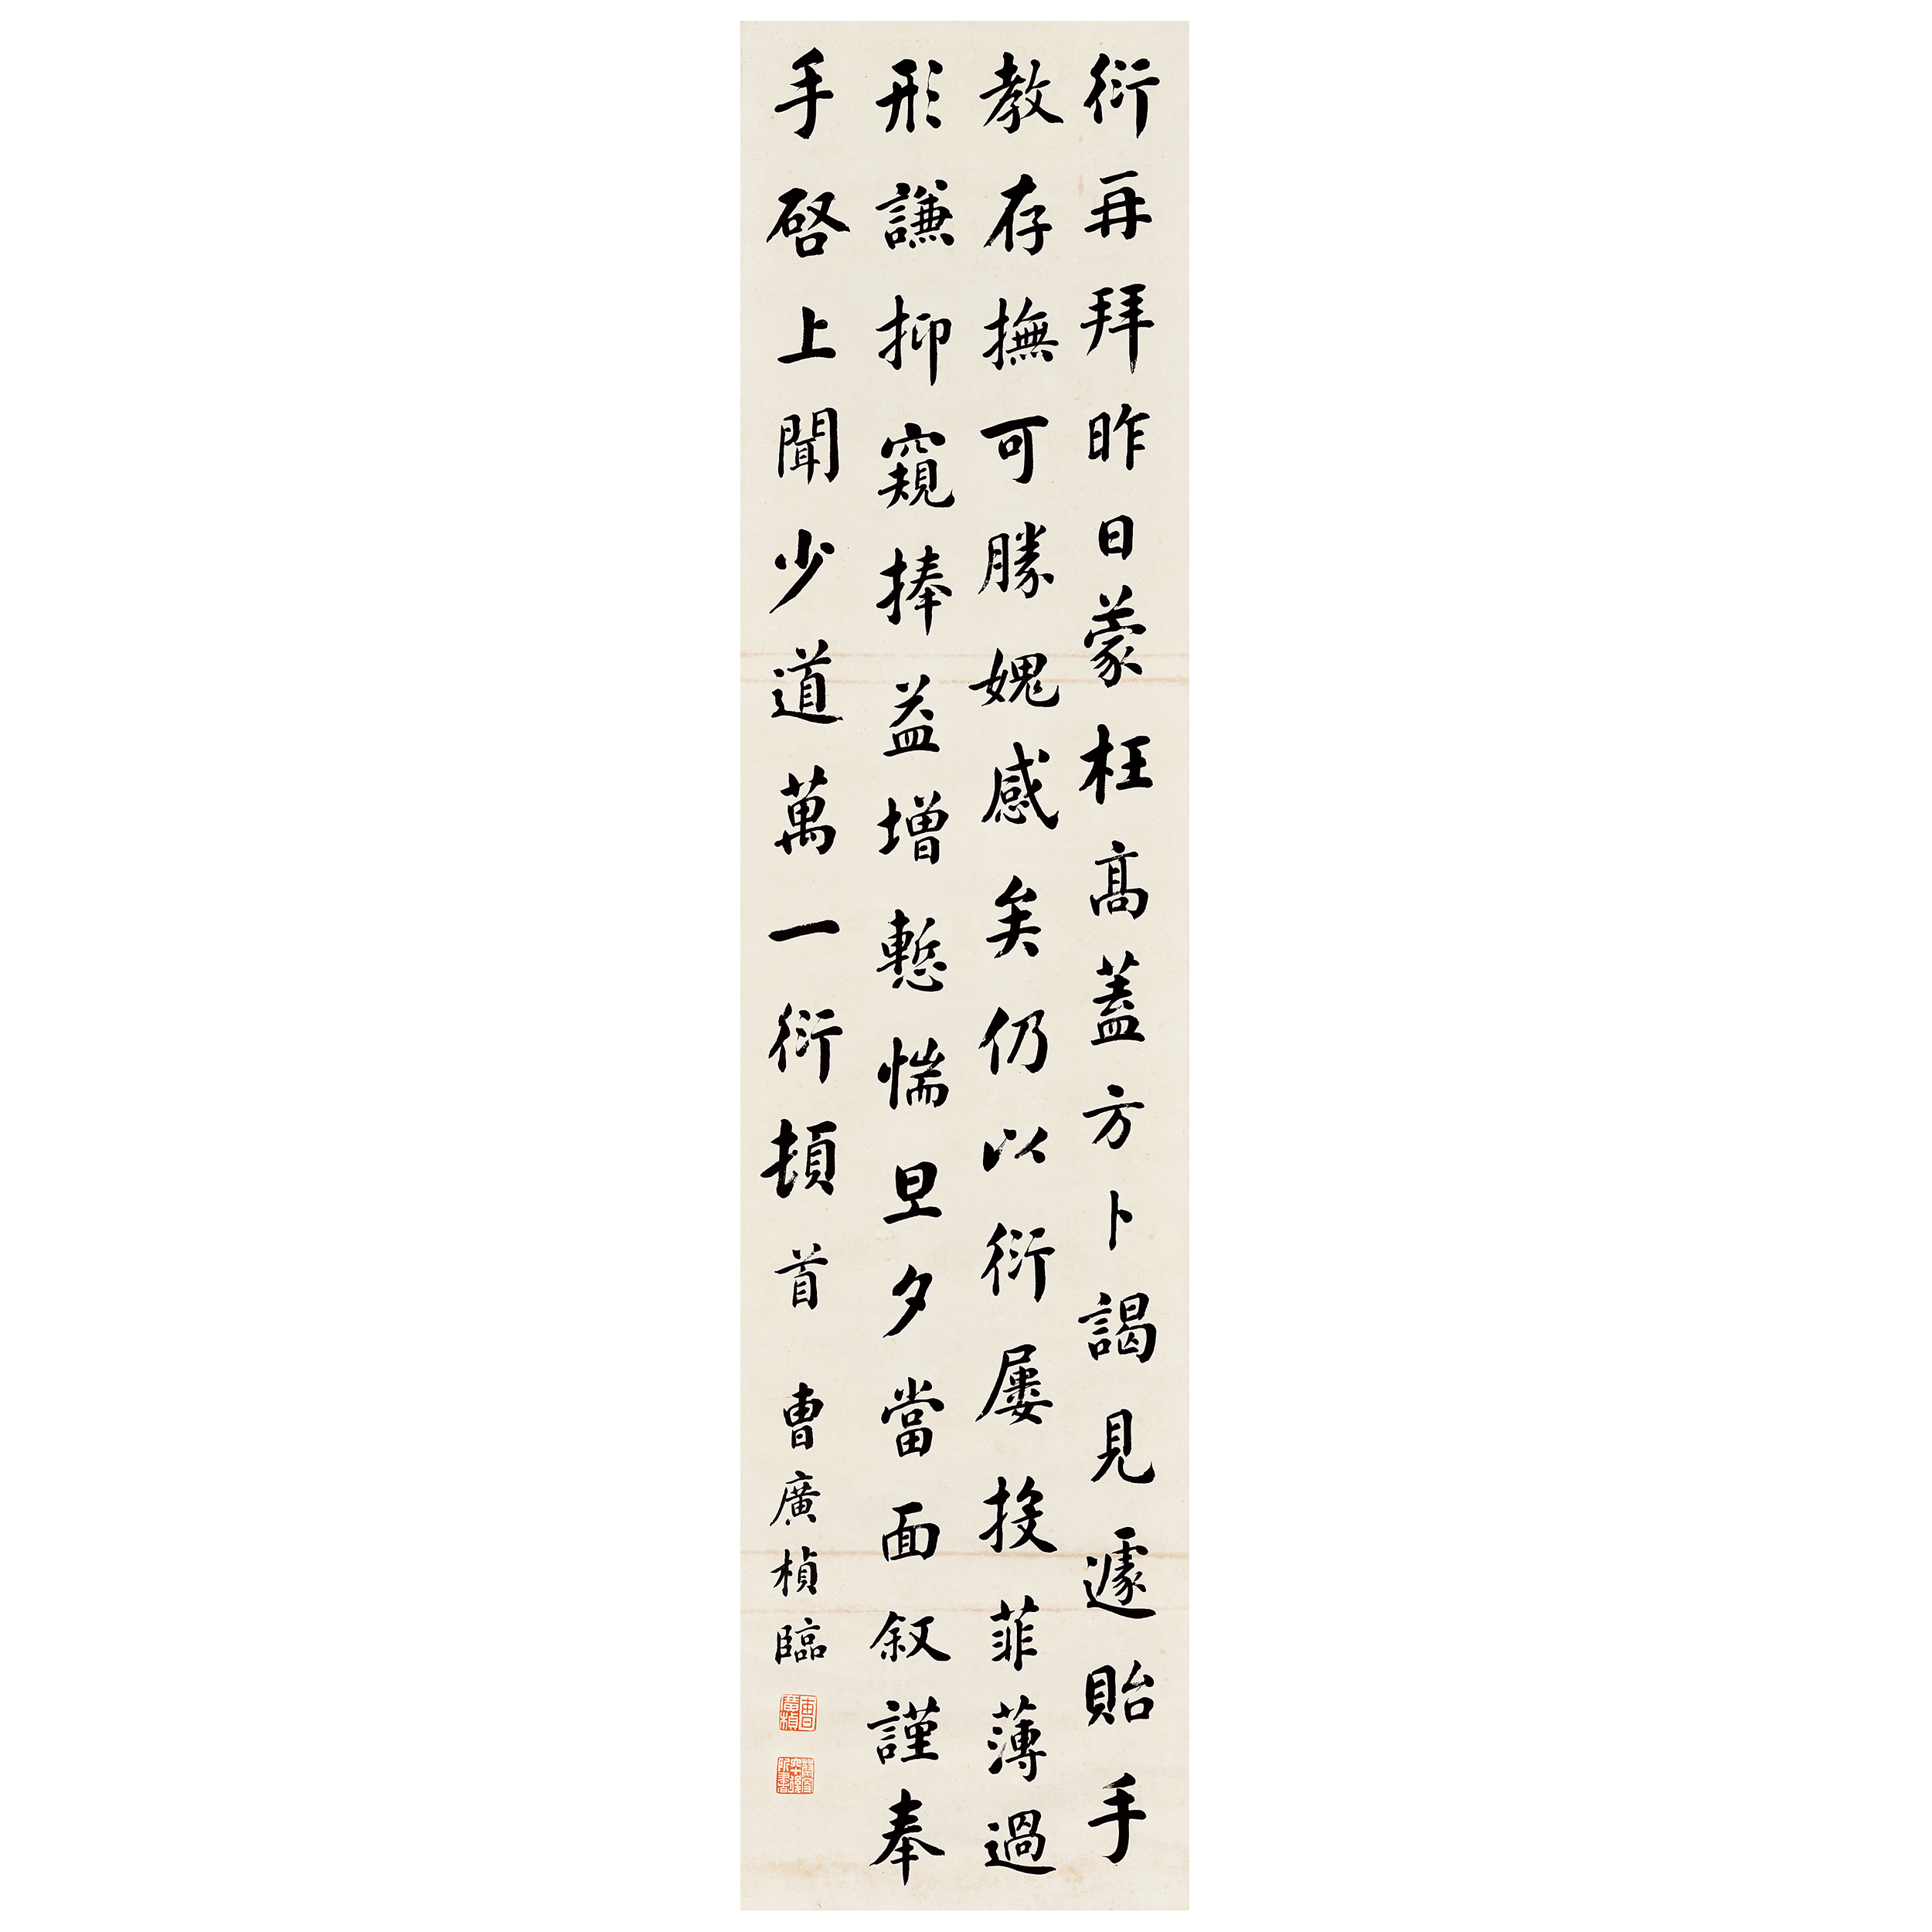 衍再拜昨日蒙枉高蓋方卜謁見遽貽手
教存撫可勝媿感矣仍以衍屢投菲薄過
形謙抑窺捧益增慙惴旦夕當面叙謹奉
手啓上聞少道萬一衍頓首
曹廣楨臨
曹廣楨